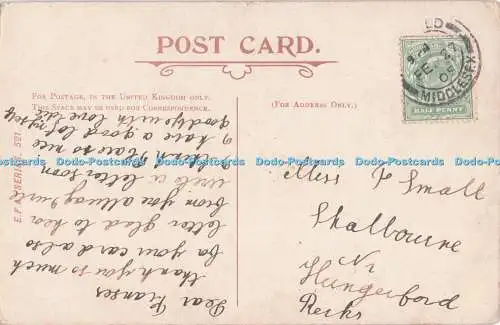 POST CARD.
FOR POSTAGE, IN THE UNITED KINGDOM ONLY.
THIS SPACE MAY BE USED FOR CORRESPONDENCE.
(FOR ADDRESS ONLY.)
LD
FE 27
05
MIDDLESEX
HALF PENNY
Dear Franses
thank you so much
for your card also
letter glad to hear
from you allways
write a letter soon
so nice
I have a good lot
goodbye with love
Miss F Small
Shalbourne
Nr
Hungerford
Berks
SERIES. 521.
Dodo-Postcards Dodo-Postcards Dodo-Postcards Dodo-Postcards Dodo-Postcards